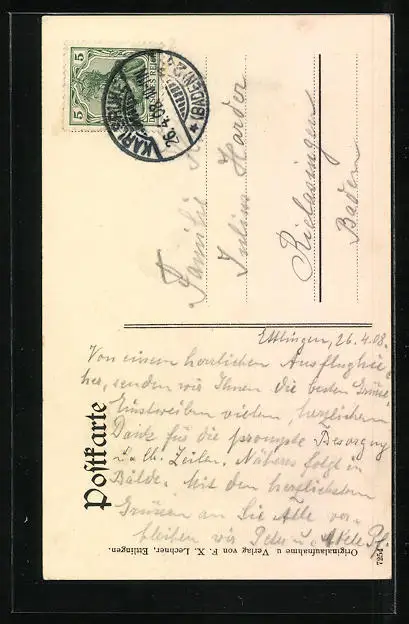 Postkarte
5
5
DEUTSCHES REICH
KARLSRUHE (BADEN)
26.4.08
Familie
Julius Harder
Rielasingen
Baden
Ettlingen, 26.4.08.
Von einem herrlichen Ausflug hie-
her, senden wir Ihnen die besten Grüsse
Einstweilen vielen, herzlichen
Dank für die prompte Besorgung
u. lb. Zeilen. Näheres folgt in
Bälde. Mit den herzlichsten
Grüssen an Sie Alle ver-
bleiben wir Peter u. Adele Pf.
Originalaufnahme u Verlag von F. X. Lechner, Ettlingen.
7254